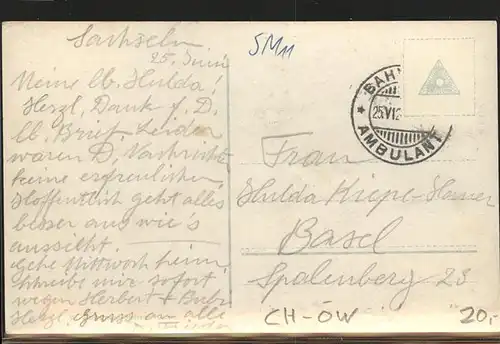 Sachseln
25. Juni
Meine lb. Hulda!
Herzl. Dank f. D.
lb. Brief. Leider
waren D. Nachricht
keine erfreulichen
Hoffentlich geht alles
besser aus wie's
aussieht.
Gehe Mittwoch heim,
schreibe mir sofort
wegen Herbert +
Herzl. Gruss an alle
5M11
BAH
25 VI 2
AMBULANT
Frau
Hulda Kiepe-
Basel
Spalenberg 23
CH-OW
20,-